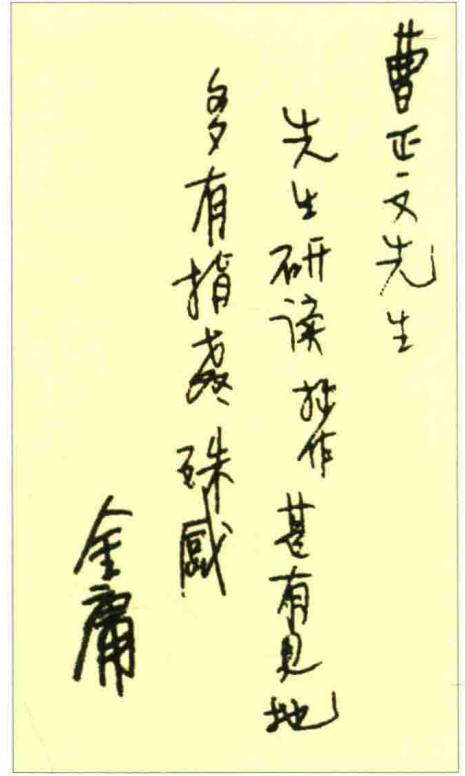 曹正文先生
先生研读拙作甚有见地
多有指教殊感
金庸